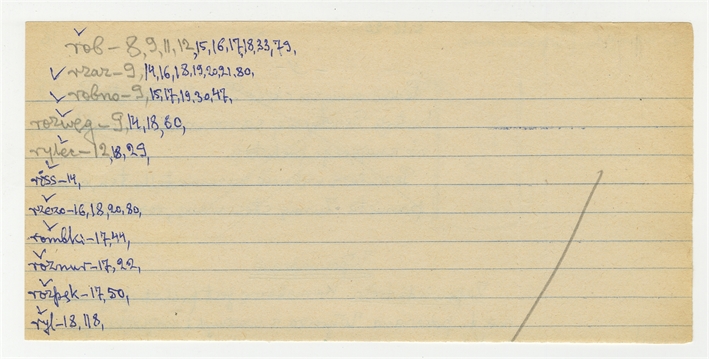 rob - 8, 9, 11, 12, 15, 16, 17, 18, 33, 79,
rzaz - 9, 14, 16, 18, 19, 20, 21, 80,
robno - 9, 15, 17, 19, 30, 47,
rozwęg - 9, 14, 18, 80,
rylec - 12, 18, 29,
riss - 14,
rzezo - 16, 18, 20, 80,
rombki - 17, 44,
roznur - 17, 22,
rozpęk - 17, 50,
ryl - 18, 118,